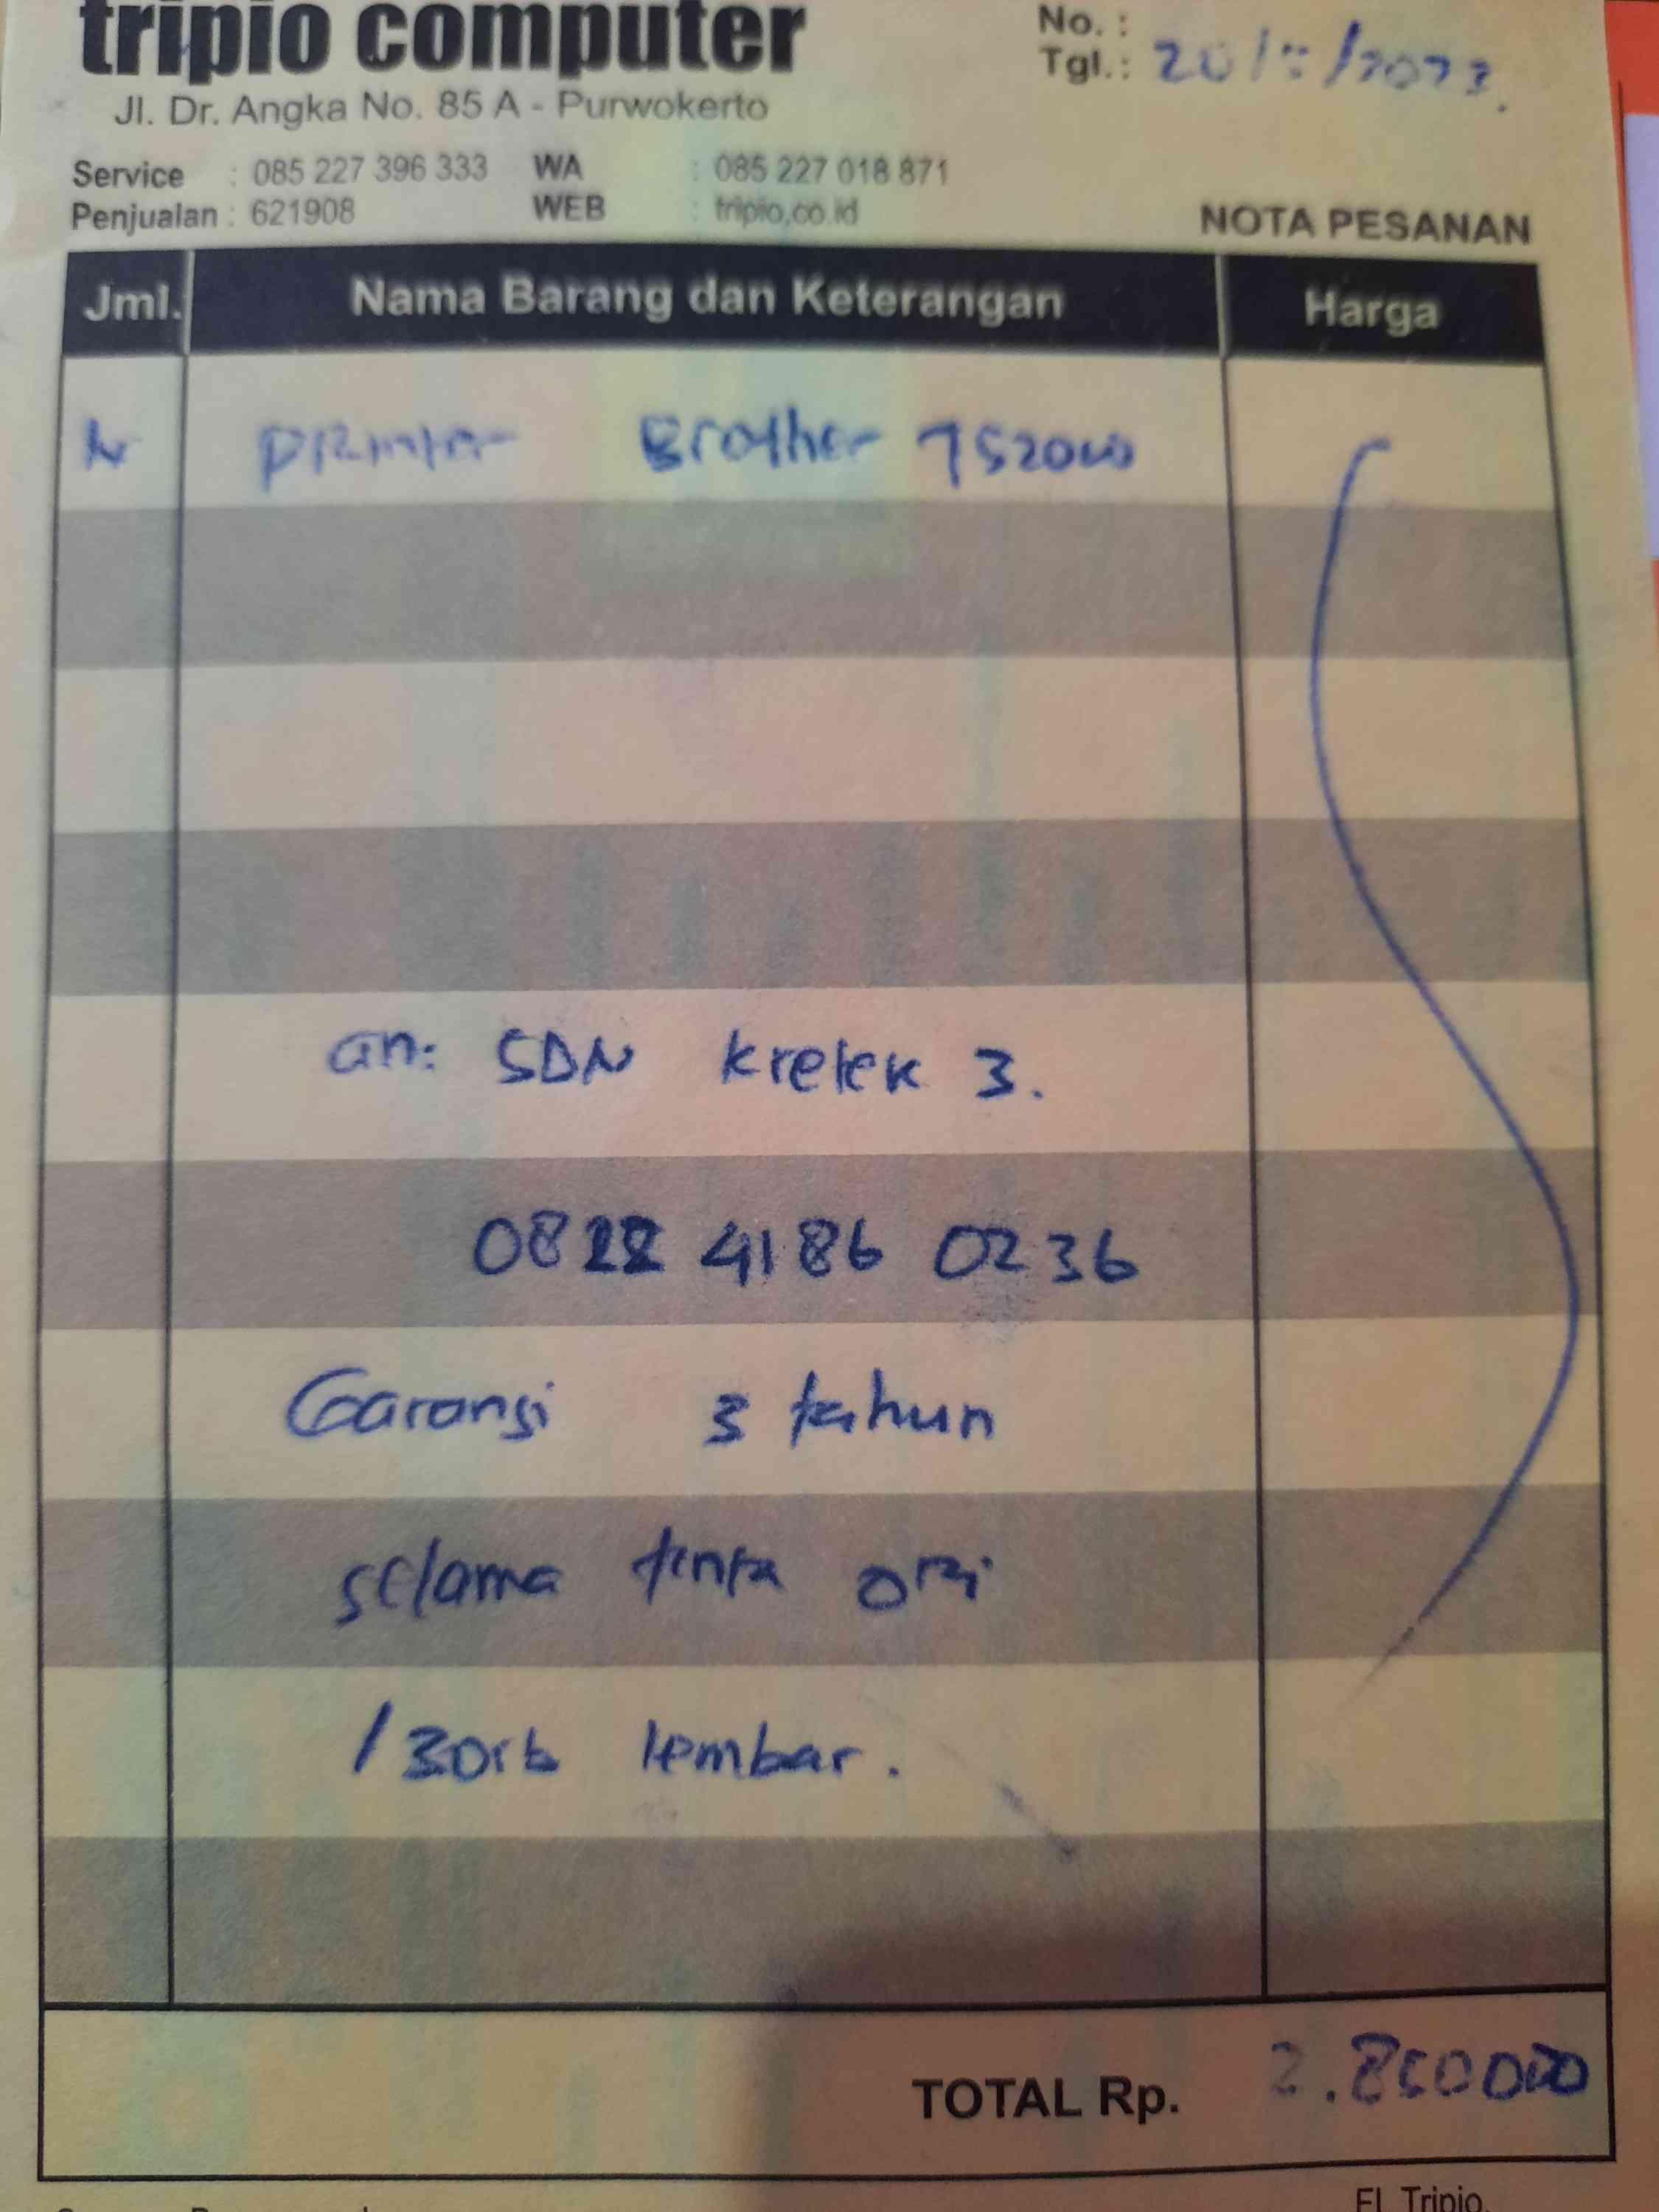 tripio computer
No. :
Tgl.: 20/ /2023.
Jl. Dr. Angka No. 85 A - Purwokerto
Service : 085 227 396 333 WA : 085 227 018 871
Penjualan : 621908 WEB : tripio,co.id
NOTA PESANAN
Jml. Nama Barang dan Keterangan Harga
Printer Brother
an: SDN Kretek 3.
0822 4186 0236
Garansi 3 tahun
selama tinta ori
/30rb lembar.
TOTAL Rp. 2.850000